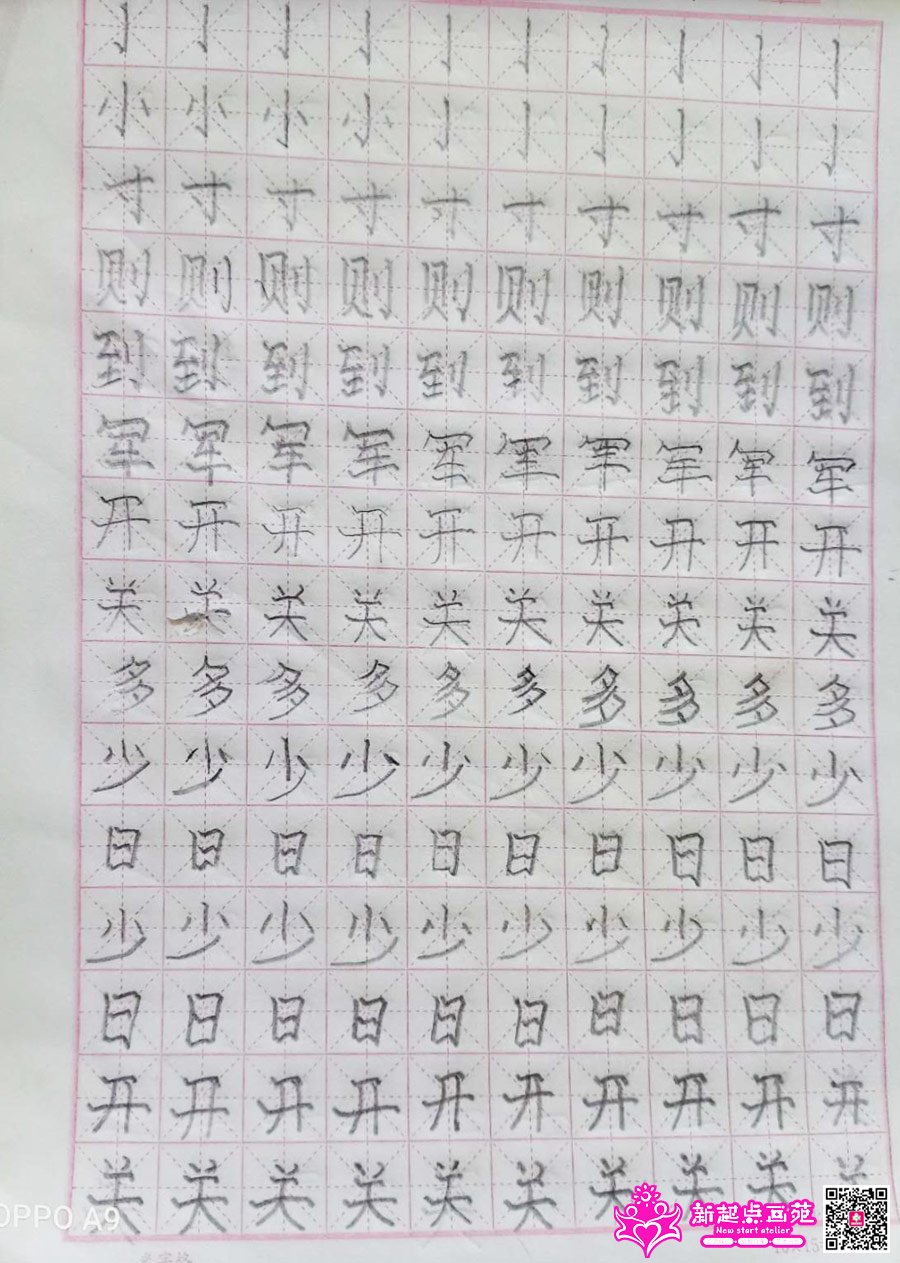 亅亅亅亅亅亅亅亅亅亅
小小小小亅亅亅亅亅亅
寸寸寸寸寸寸寸寸寸寸
则则则则则则则则则则
到到到到到到到到到到
军军军军军军军军军军
开开开开开开开开开开
关关关关关关关关关关
多多多多多多多多多多
少少少少少少少少少少
日日日日日日日日日日
少少少少少少少少少少
日日日日日日日日日日
开开开开开开开开开开
关关关关关关关关关关
OPPO A9
新起点画苑
New start atelier